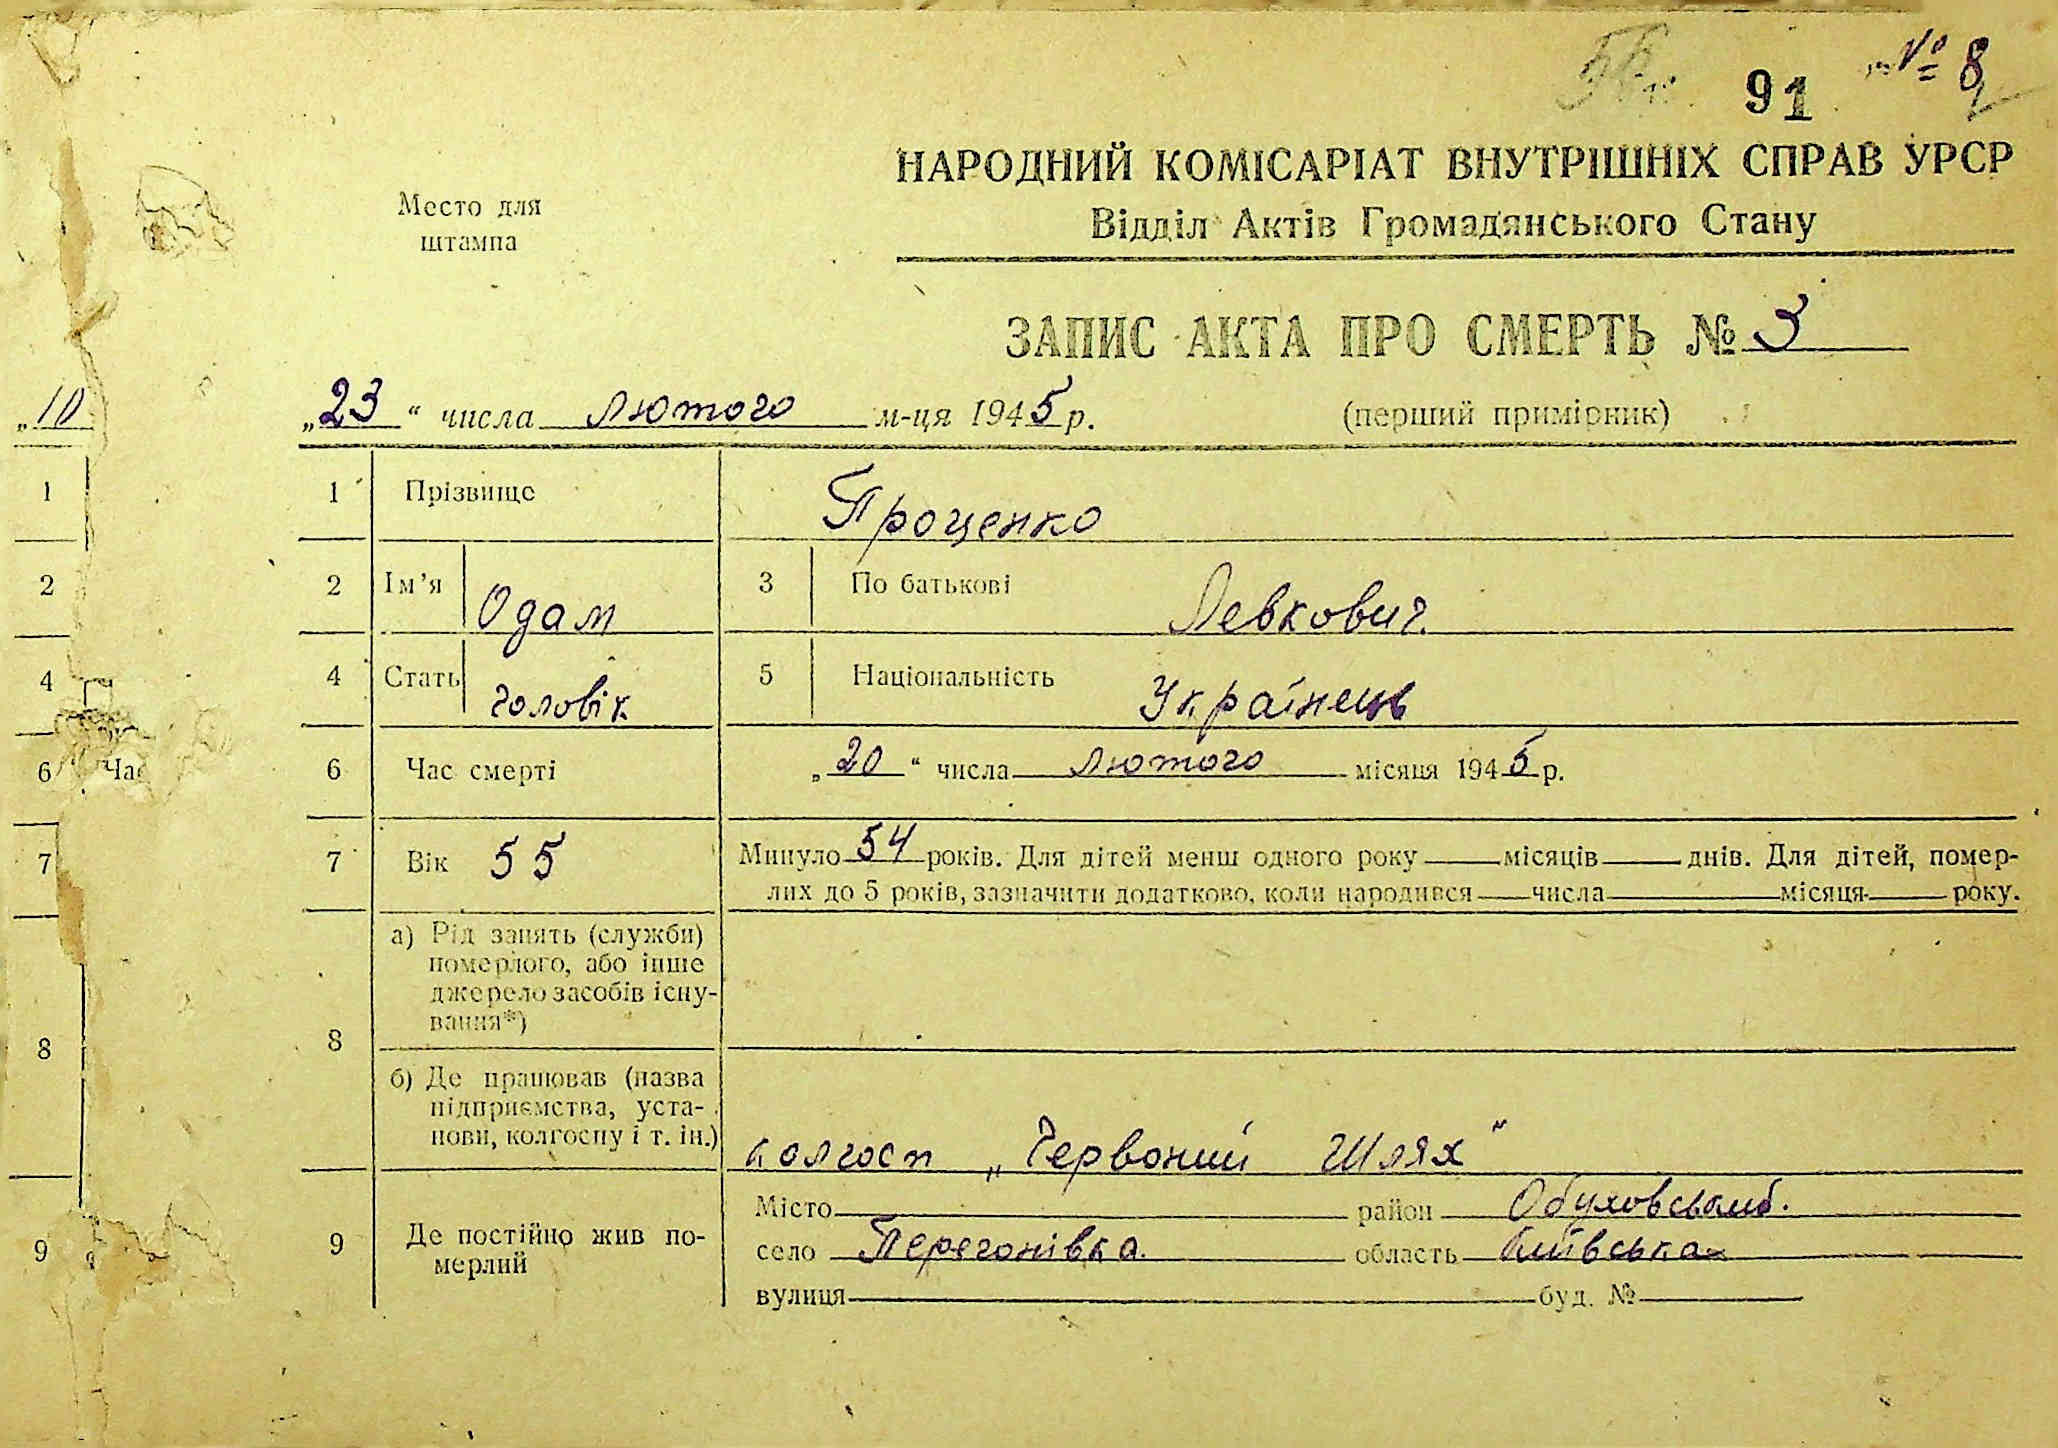 91 № 8
НАРОДНИЙ КОМІСАРІАТ ВНУТРІШНІХ СПРАВ УРСР
Место для
штампа
Відділ Актів Громадянського Стану
ЗАПИС АКТА ПРО СМЕРТЬ № 3
„10
„23“ числа лютого м-ця 1945 р. (перший примірник)
1 1 Прізвище Проценко
2 2 Ім’я Одам 3 По батькові Левкович
4 4 Стать чоловік 5 Національність Українець
6 Час 6 Час смерті „20“ числа лютого місяця 1945 р.
7 7 Вік 55 Минуло 54 років. Для дітей менш одного року місяців днів. Для дітей, помер-
лих до 5 років, зазначити додатково, коли народився числа місяця року.
8 8 а) Рід занять (служби)
померлого, або інше
джерело засобів існу-
вання*)
б) Де працював (назва
підприємства, уста-
нови, колгоспу і т. ін.) колгосп „Червоний Шлях“
9 9 Де постійно жив по-
мерлий
Місто район
село Перегонівка область Київська
вулиця буд. №